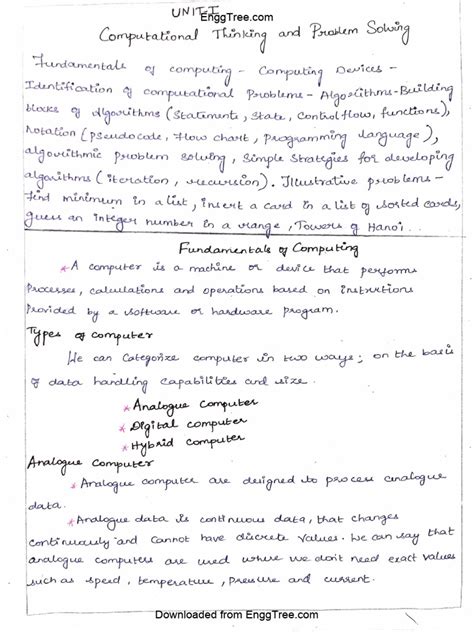 UNIT-I
EnggTree.com
Computational Thinking and Problem Solving
Fundamentals of computing - Computing Devices -
Identification of computational Problems - Algorithms-Building
blocks of algorithms (Statements, State, Control flow, functions),
notation (pseudocode, flow chart, programming language),
algorithmic problem solving, Simple Strategies for developing
algorithms (iteration, recursion). Illustrative problems -
find minimum in a list, insert a card in a list of sorted cards,
guess an integer number in a range, Towers of Hanoi..
Fundamentals of Computing
* A computer is a machine or device that performs
Processes, calculations and operations based on instructions
Provided by a software or hardware program.
Types of computer
We can Categorize computer in two ways; on the basis
of data handling capabilities and size.
* Analogue Computer
* Digital computer
* Hybrid computer
Analogue Computer
* Analogue computer are designed to process analogue
data.
* Analogue data is continuous data, that changes
continuously and cannot have discrete values. We can say that
analogue computers are used where we don't need exact values
such as speed, temperature, pressure and current.
Downloaded from EnggTree.com